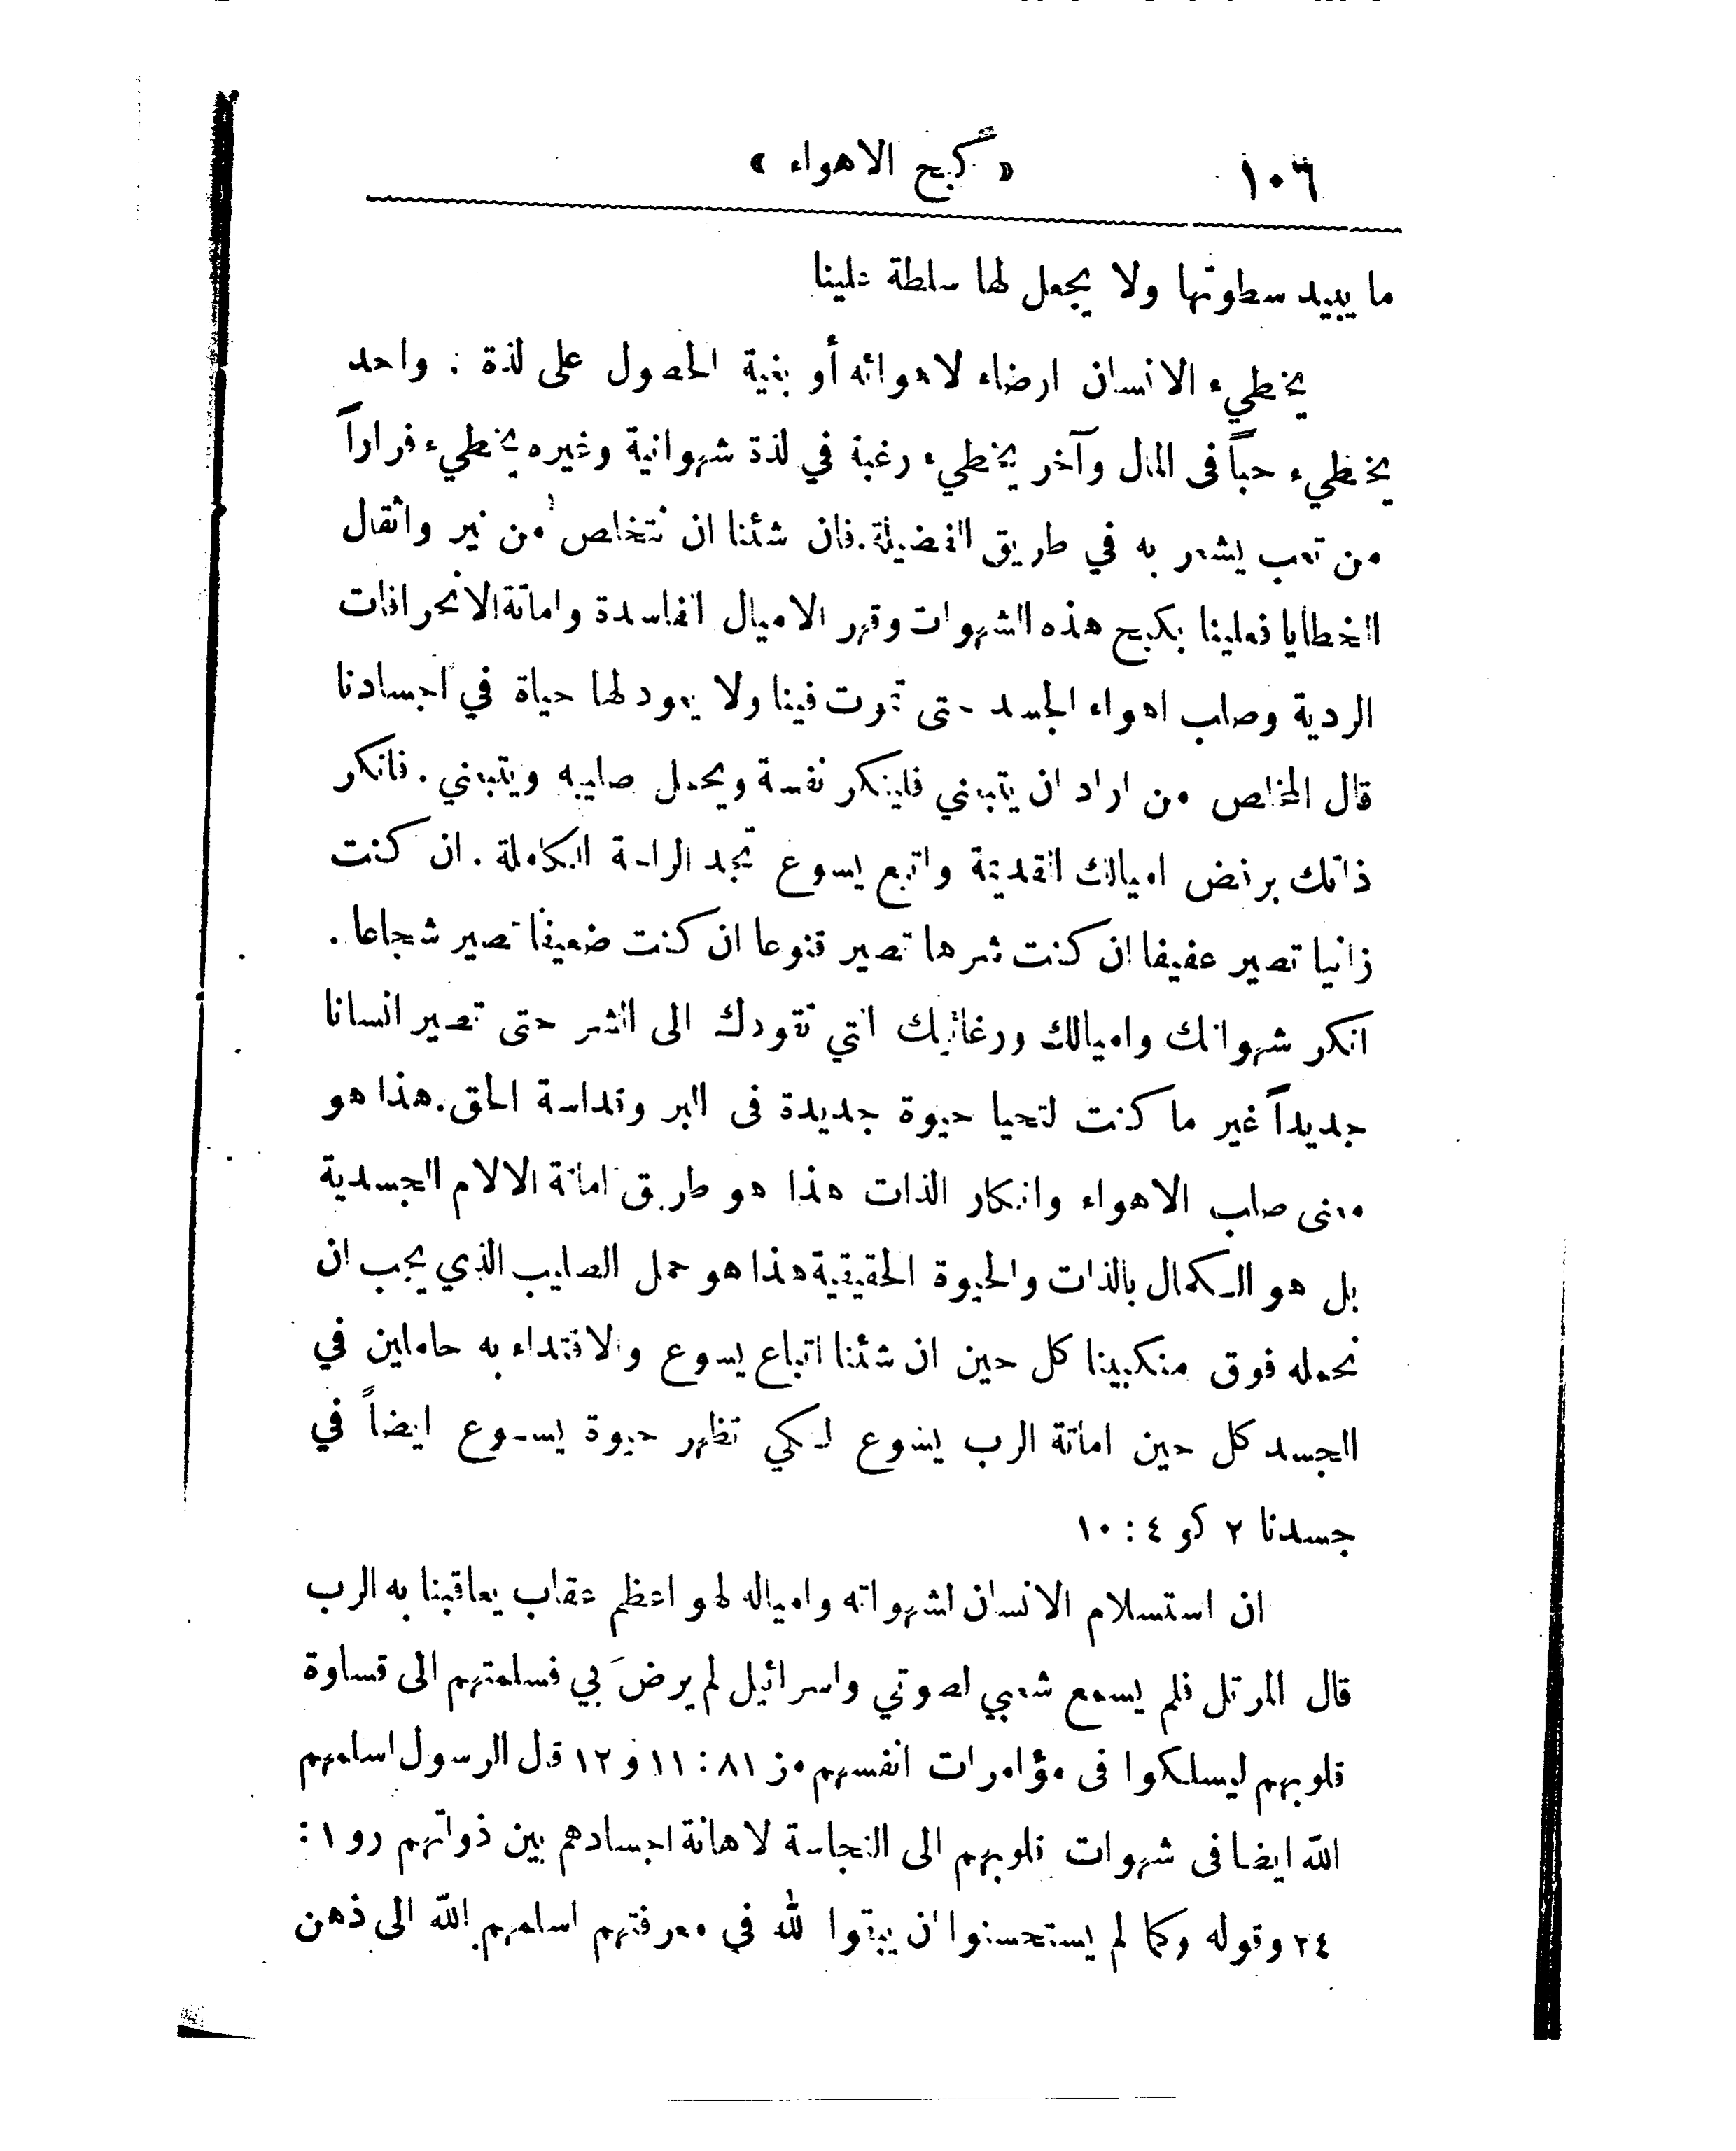 ١٠٦ « كبح الاهواء »
ما يبيد سطوتها ولا يجعل لها سلطة علينا
يخطيء الانسان ارضاء لاهوائه أو بغية الحصول على لذة . واحد
يخطيء حباً فى المال وآخر يخطيء رغبة في لذة شهوانية وغيره يخطيء فراراً
من تعب يشعر به في طريق الفضيلة . فان شئنا ان نتخلص من نير واثقال
الخطايا فعلينا بكبح هذه الشهوات وقهر الاميال الفاسدة واماتة الانحرافات
الردية وصلب اهواء الجسد حتى تموت فينا ولا يعود لها حياة في اجسادنا
قال المخلص من اراد ان يتبعني فلينكر نفسة ويحمل صليبه ويتبعني . فانكر
ذاتك برفض اميالك القديمة واتبع يسوع تجد الراحة الكاملة . ان كنت
زانيا تصير عفيفا ان كنت شرها تصير قنوعا ان كنت ضعيفا تصير شجاعا .
انكر شهواتك واميالك ورغائبك التي تقودك الى الشر حتى تصير انسانا
جديداً غير ما كنت لتحيا حيوة جديدة فى البر وقداسة الحق . هذا هو
معنى صلب الاهواء وانكار الذات هذا هو طريق اماتة الالام الجسدية
بل هو الكمال بالذات والحيوة الحقيقية هذا هو حمل الصليب الذي يجب ان
نحمله فوق منكبينا كل حين ان شئنا اتباع يسوع والاقتداء به حاملين في
الجسد كل حين اماتة الرب يسوع لكي تظهر حيوة يسوع ايضاً في
جسدنا ٢ كو ٤ : ١٠
ان استسلام الانسان لشهواته وامياله لهو اعظم عقاب يعاقبنا به الرب
قال المرتل فلم يسمع شعبي لصوتي واسرائيل لم يرضَ بي فسلمتهم الى قساوة
قلوبهم ليسلكوا فى مؤامرات انفسهم مز ٨١ : ١١ و ١٢ قال الرسول اسلمهم
الله ايضا فى شهوات قلوبهم الى النجاسة لاهانة اجسادهم بين ذواتهم رو ١ :
٢٤ وقوله وكما لم يستحسنوا ان يبقوا لله في معرفتهم اسلمهم الله الى ذهن